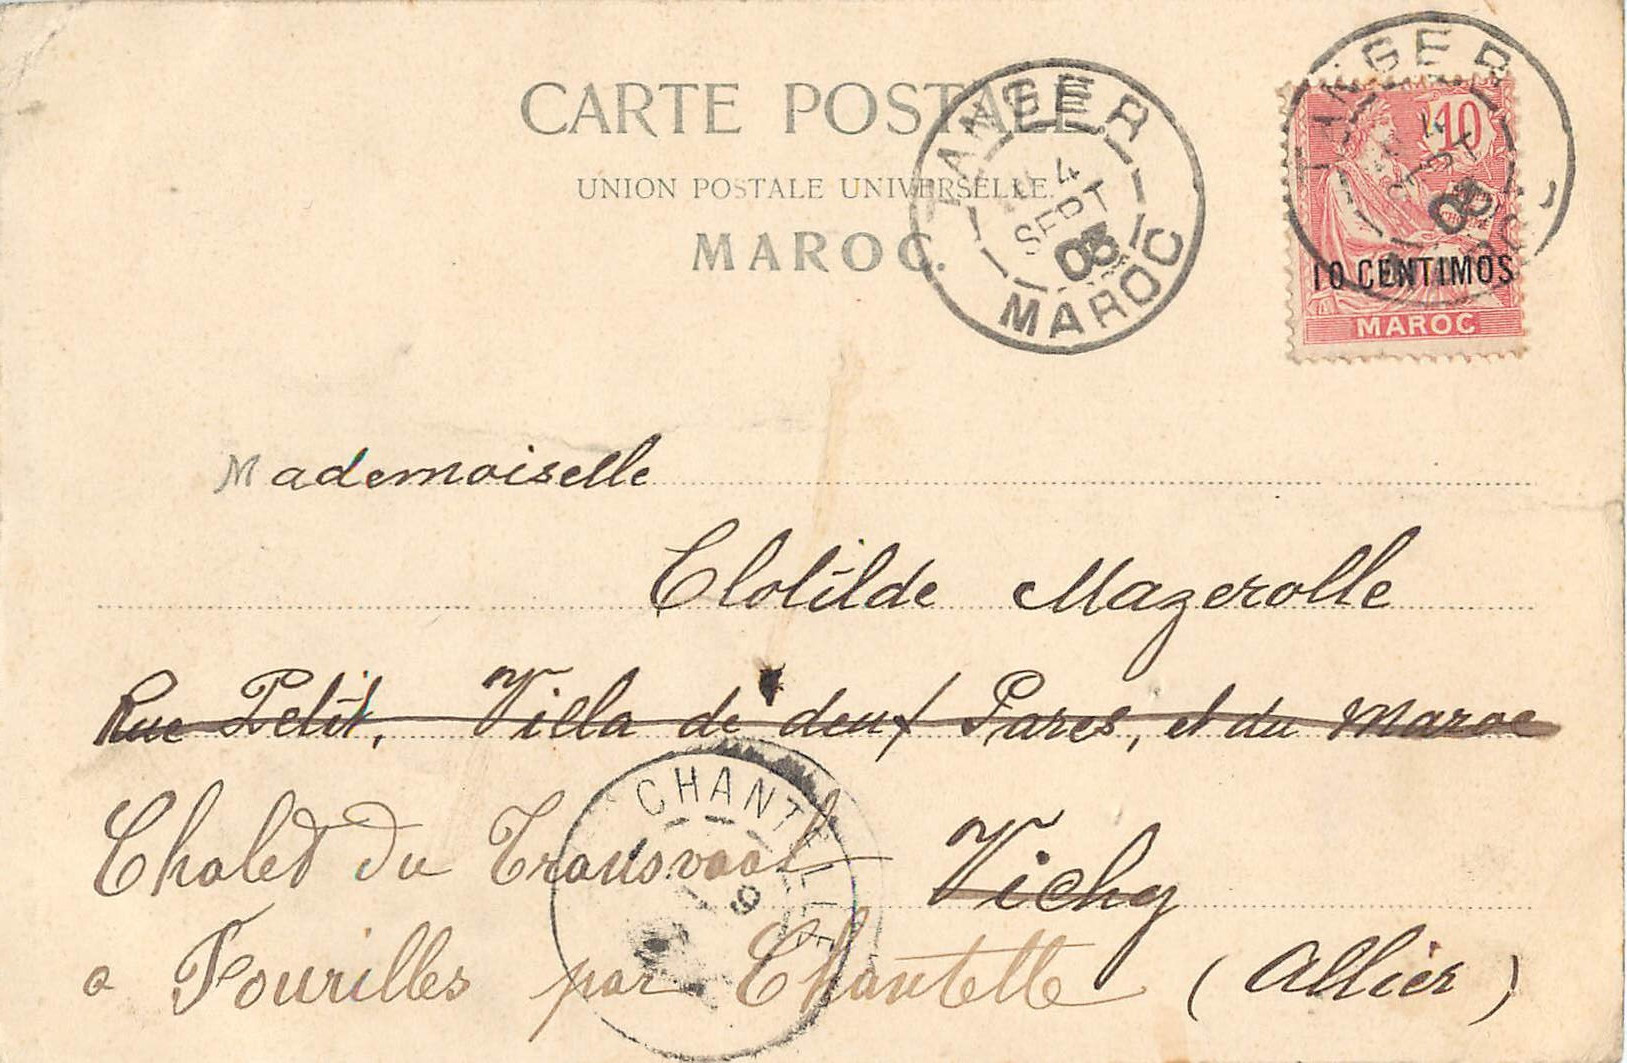 CARTE POSTALE
UNION POSTALE UNIVERSELLE.
MAROC.
TANGER
4
SEPT
03
MAROC
TANGER
4
SEPT
03
10
10 CENTIMOS
MAROC
Mademoiselle
Clotilde Mazerolle
Rue Petit, Villa de deux Pares, et du Maroc
Chalet du Transvaal Vichy
a Fourilles par Chantelle (Allier)
CHANTELLE